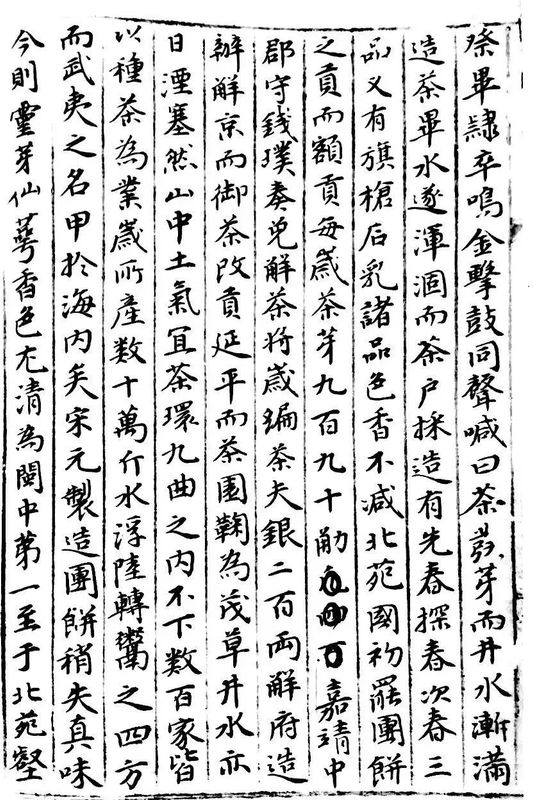 祭畢隸卒鳴金擊鼓同聲喊曰茶發芽而井水漸滿
造茶畢水遂渾涸而茶戶採造有先春探春次春三
品又有旗槍石乳諸品色香不減北苑國初罷團餅
之貢而額貢每歲茶芽九百九十觔嘉靖中
郡守錢璞奏免解茶將歲編茶夫銀二百兩解府造
辦解京而御茶改貢延平而茶園鞠為茂草井水亦
日湮塞然山中土氣宜茶環九曲之內不下数百家皆
以種茶為業歲所產数十萬斤水浮陸轉鬻之四方
而武夷之名甲於海內矣宋元製造團餅稍失真味
今則靈芽仙萼香色尤清為閩中第一至于北苑壑